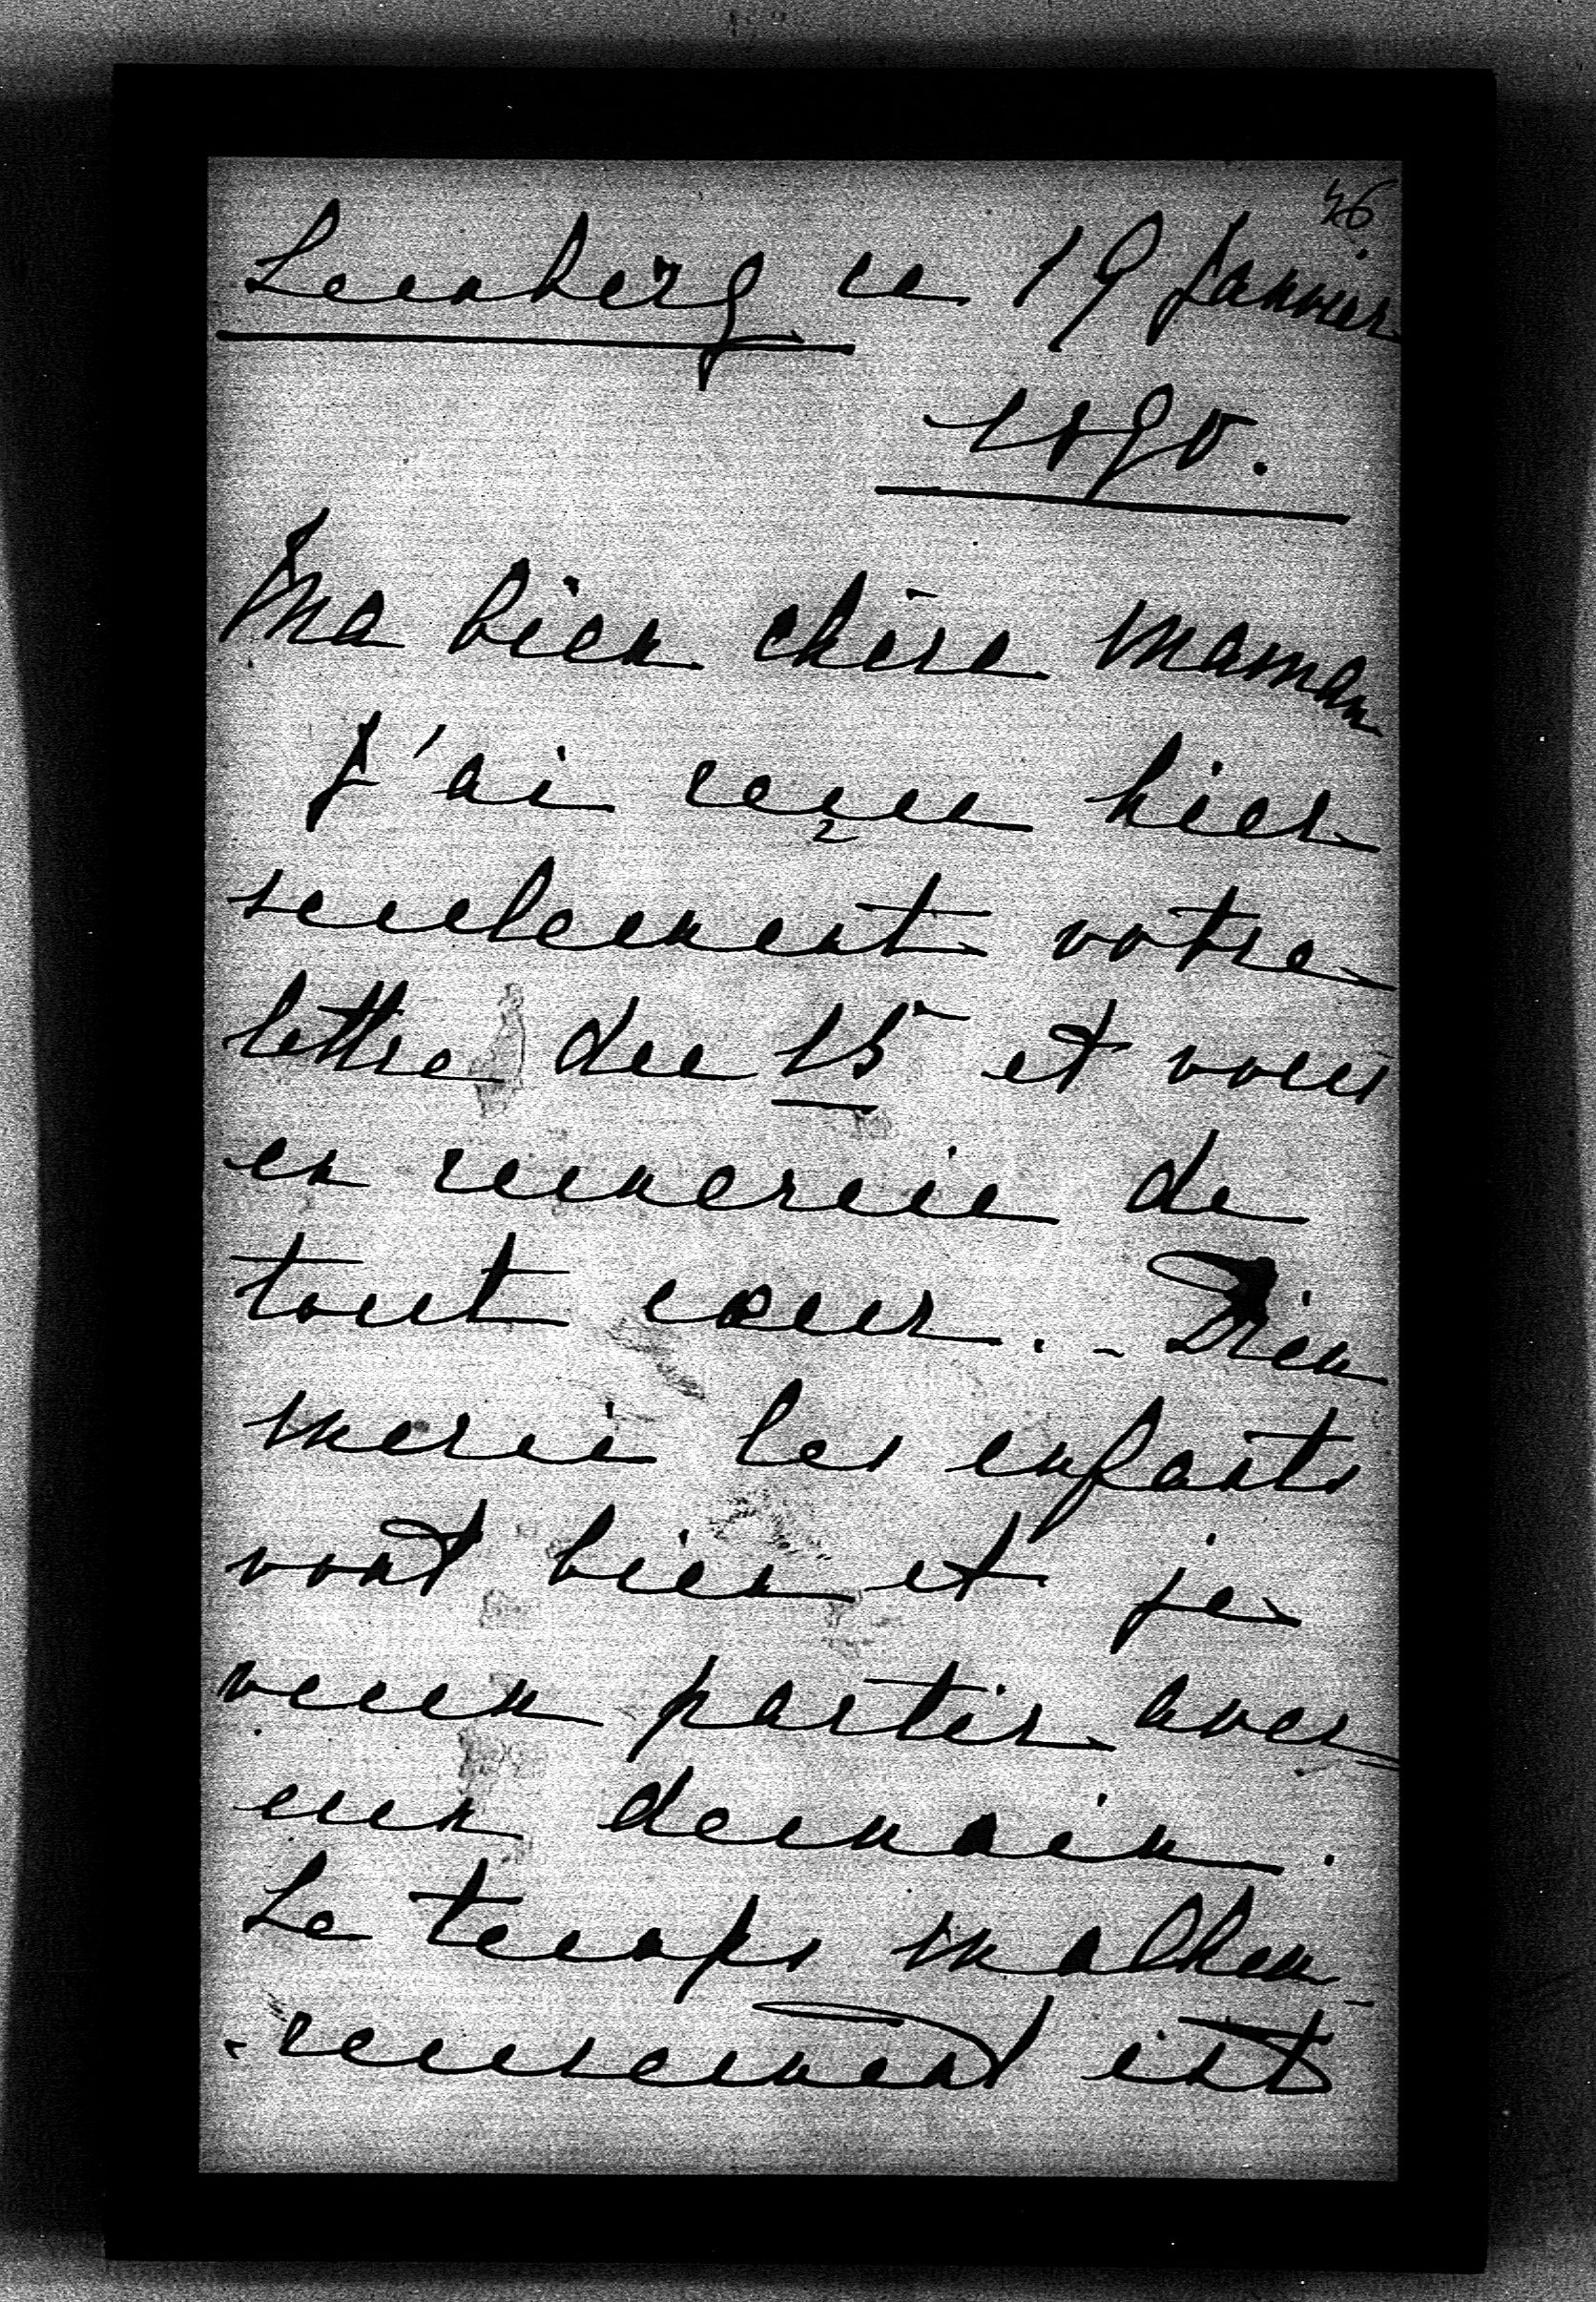 46
Lemberg ce 19 Janvier
1890.
Ma bien chère maman
J'ai reçue hier
seulement votre
lettre du 15 et vous
en remercie de
tout coeur. - Dieu
merci les enfants
vont bien et je
veux partir avec
eux demain.
Le temps malheu-
-reusement est